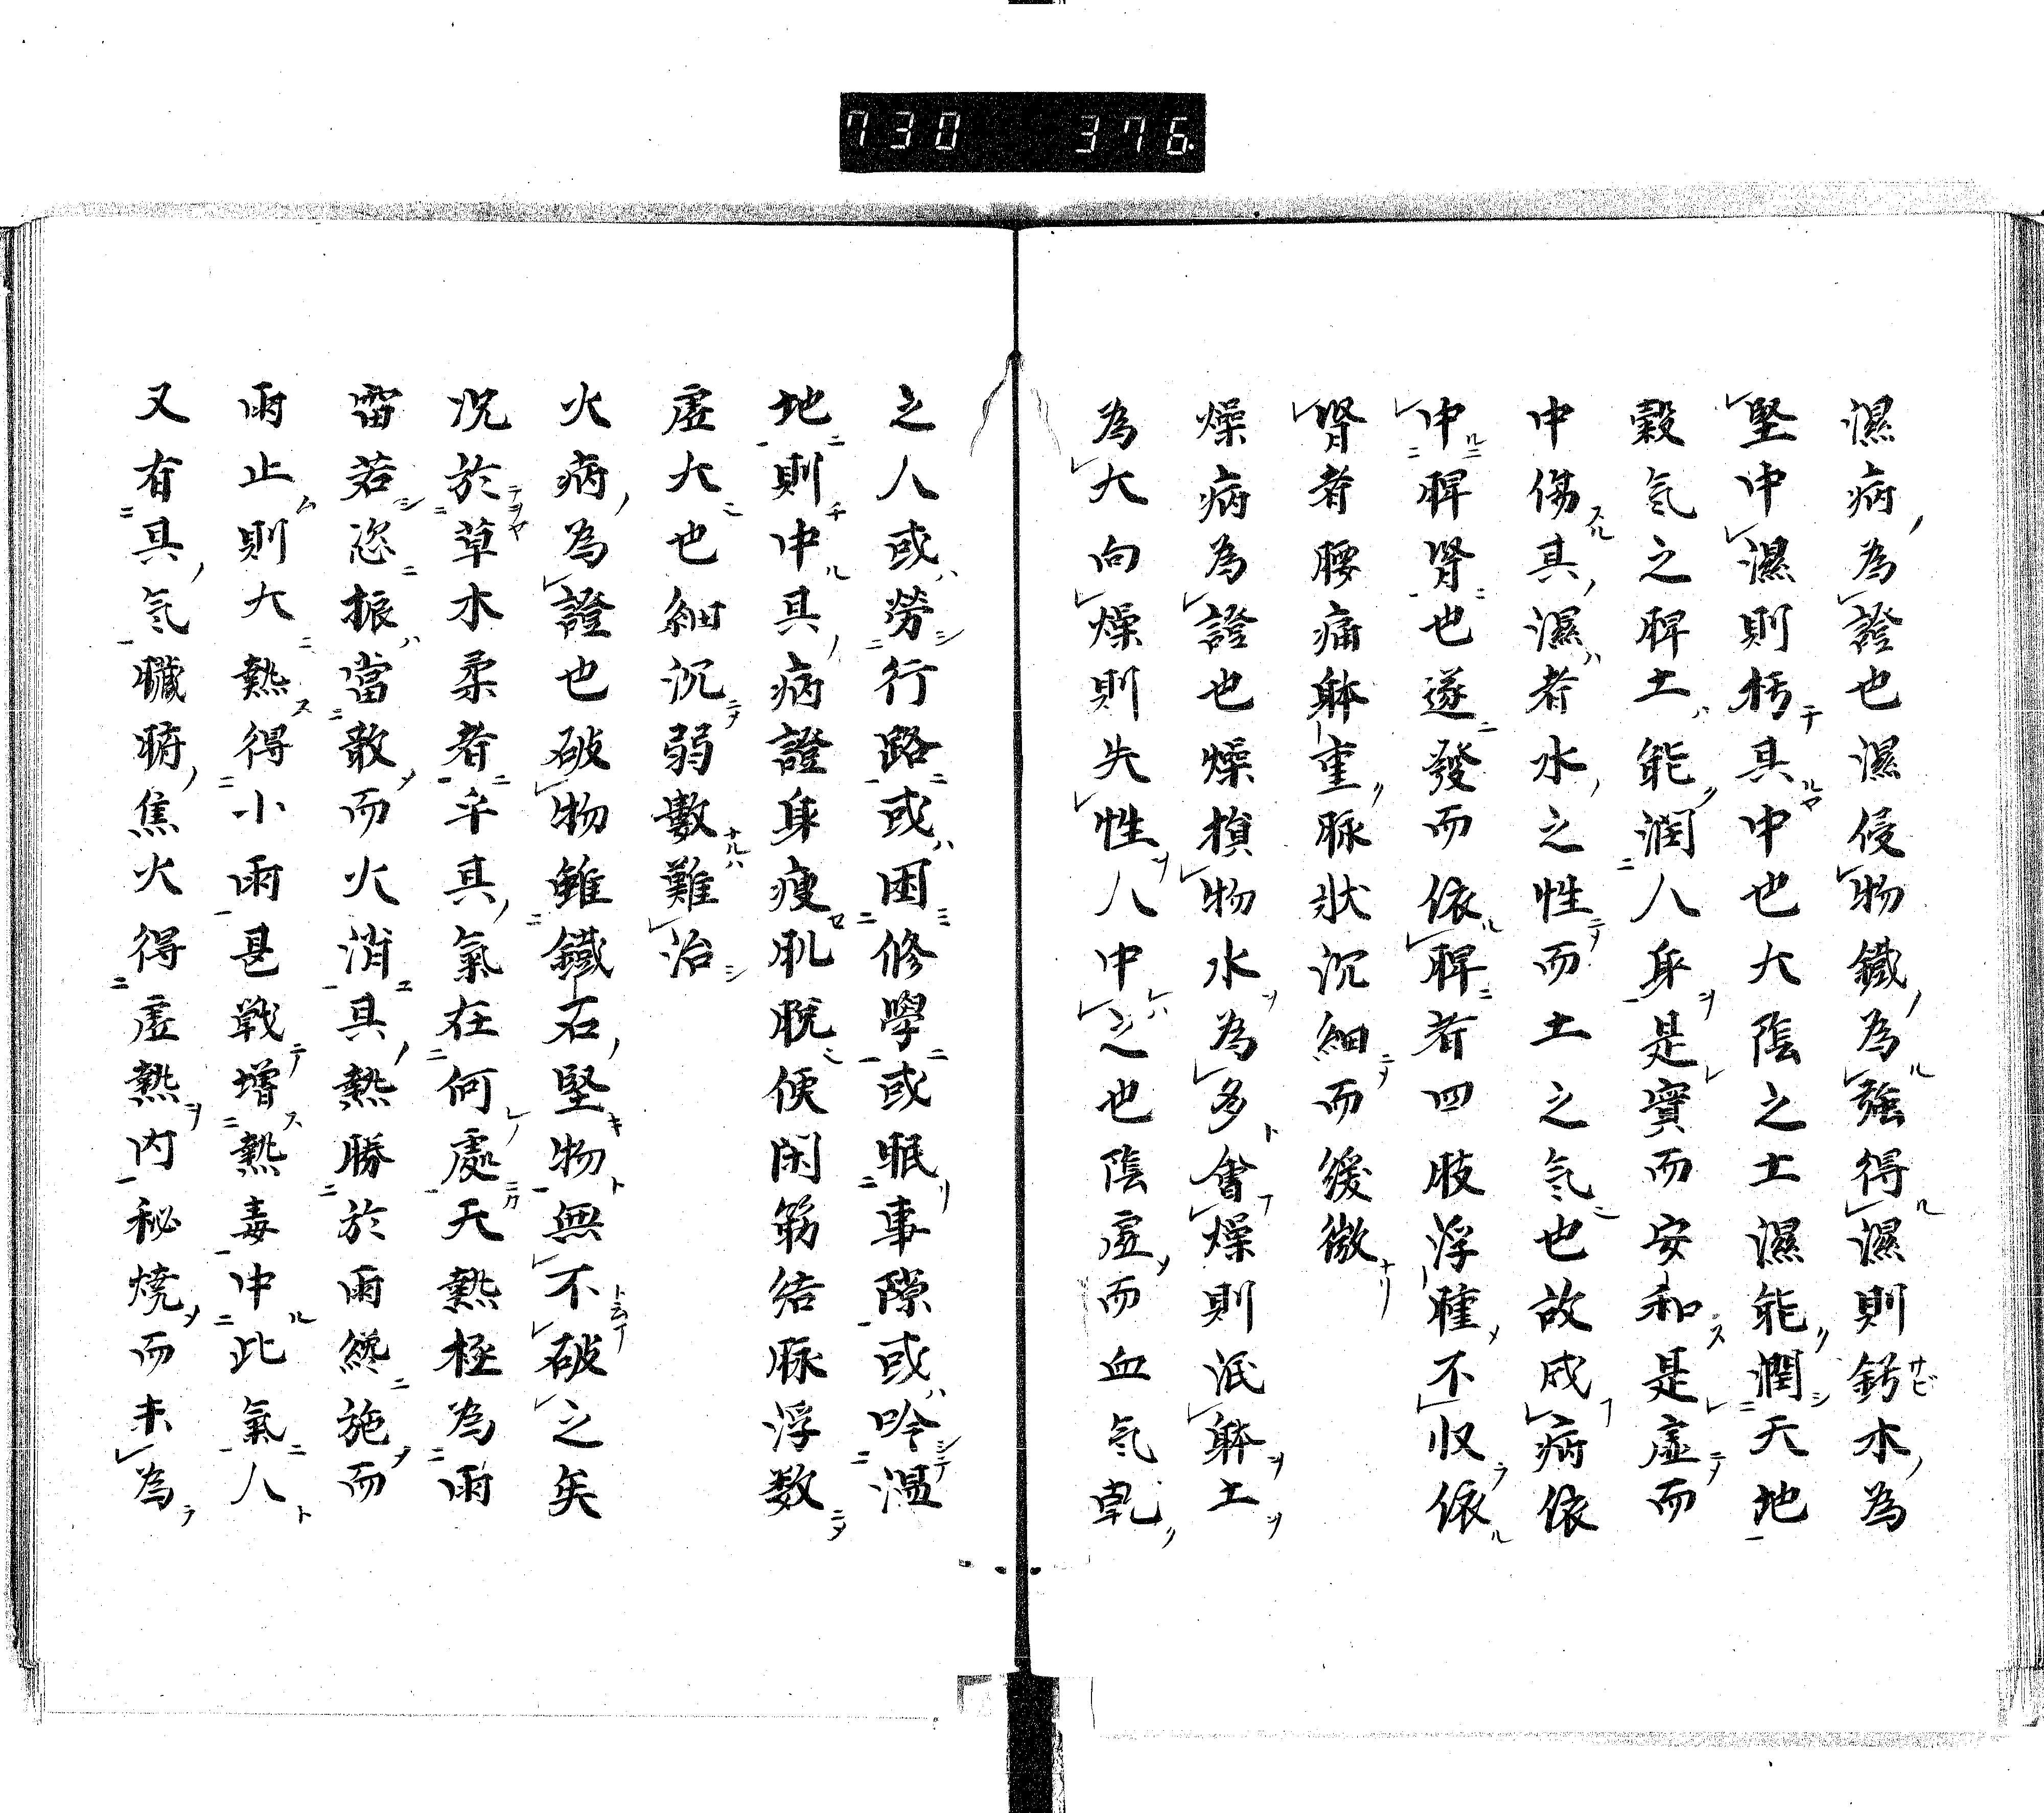 730 376.
濕病為證也濕侵物鐵為強得濕則釫木為
堅中濕則朽其中也大陰之土濕能潤天地
穀氣之脾土能潤人身是實而安和是虛而
中傷其濕者水之性而土之氣也故成病依
中脾腎也遂發而依脾者四肢浮腫不収依
腎者腰痛躰重脉狀沉細而後微
燥病為證也燥損物水為多會燥則泯躰土
為大向燥則失性人中之也陰虛而血気乾
之人或勞行路或困修學或眠事隙或吟溫
地則中其病證身瘦肌脫便閑筋結脉浮数
虛大也細沉弱數難治
火病為證也破物雖鐵石堅物無不破之矣
况於草木柔者乎其氣在何處天熱極為雨
雷若恣振當敢而火消其熱勝於雨纔施而
雨止則大熱得小雨甚戰增熱毒中此氣人
又有其気臟腑焦火得虛熱內秘燒而未為